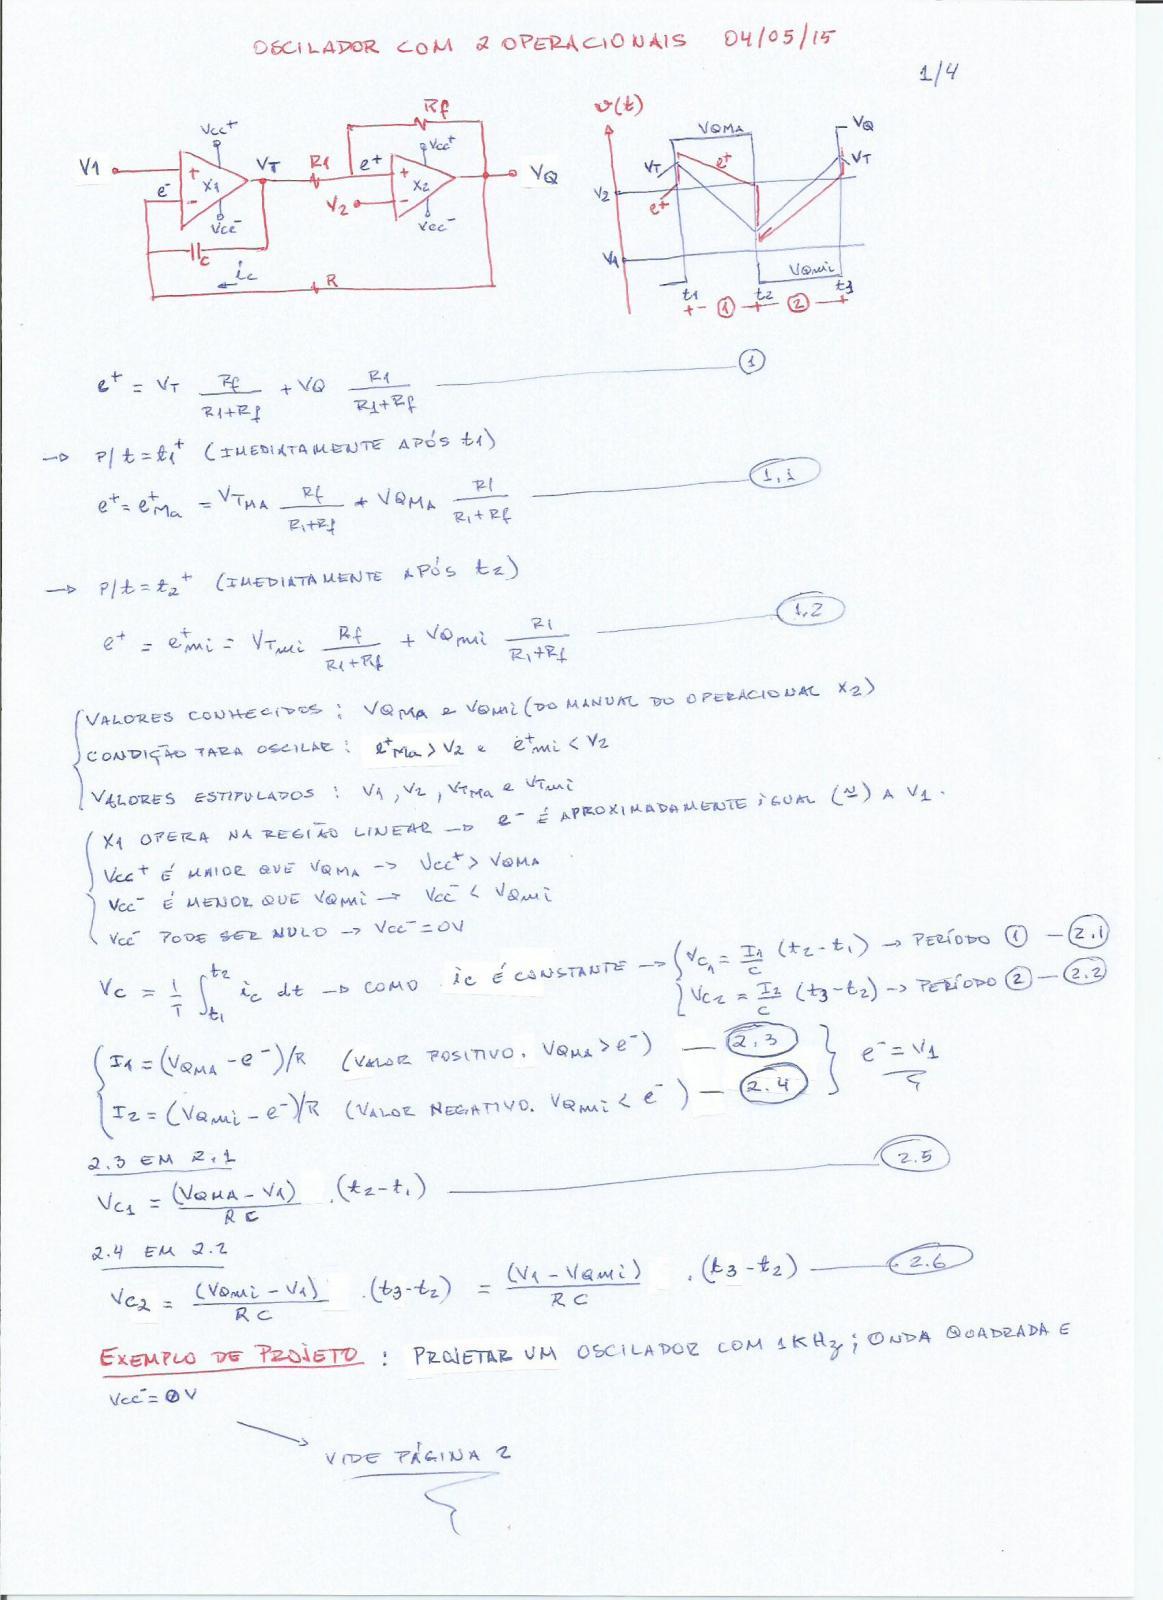 OSCILADOR COM 2 OPERACIONAIS 04/05/15
1/4
V1
Vcc+
+
e-
-
X1
Vcc-
VT
R1
e+
Rf
Vcc+
+
V2
-
X2
Vcc-
VQ
C
ic
R
v(t)
VQMA
VQ
VT
e+
VT
V2
e+
V1
VQMi
t1
t2
t3
+- ① -+- ② -+
e+ = VT Rf/(R1+Rf) + VQ R1/(R1+Rf) ①
→ P/ t = t1+ (IMEDIATAMENTE APÓS t1)
e+ = e+Ma = VTMA Rf/(R1+Rf) + VQMA R1/(R1+Rf) 1,1
→ P/ t = t2+ (IMEDIATAMENTE APÓS t2)
e+ = e+mi = VTMi Rf/(R1+Rf) + VQMi R1/(R1+Rf) 1,2
VALORES CONHECIDOS : VQMA e VQMi (DO MANUAL DO OPERACIONAL X2)
CONDIÇÃO PARA OSCILAR : e+Ma > V2 e e+mi < V2
VALORES ESTIPULADOS : V1, V2, VTMa e VTMi
X1 OPERA NA REGIÃO LINEAR → e- É APROXIMADAMENTE IGUAL (≃) A V1.
Vcc+ É MAIOR QUE VQMA → Vcc+ > VQMA
Vcc- É MENOR QUE VQMi → Vcc- < VQMi
Vcc- PODE SER NULO → Vcc- = 0V
VC = 1/T ∫t1 t2 ic dt → COMO ic É CONSTANTE → VC1 = I1/C (t2-t1) → PERÍODO ① — 2.1
VC2 = I2/C (t3-t2) → PERÍODO ② — 2.2
I1 = (VQMA - e-)/R (VALOR POSITIVO. VQMA > e-) — 2.3
e- = V1
I2 = (VQMi - e-)/R (VALOR NEGATIVO. VQMi < e-) — 2.4
2.3 EM 2.1
VC1 = (VQMA - V1)/RC .(t2-t1) 2.5
2.4 EM 2.2
VC2 = (VQMi - V1)/RC .(t3-t2) = (V1 - VQMi)/RC .(t3-t2) 2.6
EXEMPLO DE PROJETO : PROJETAR UM OSCILADOR COM 1KHz; ONDA QUADRADA E
Vcc- = 0V
VIDE PÁGINA 2